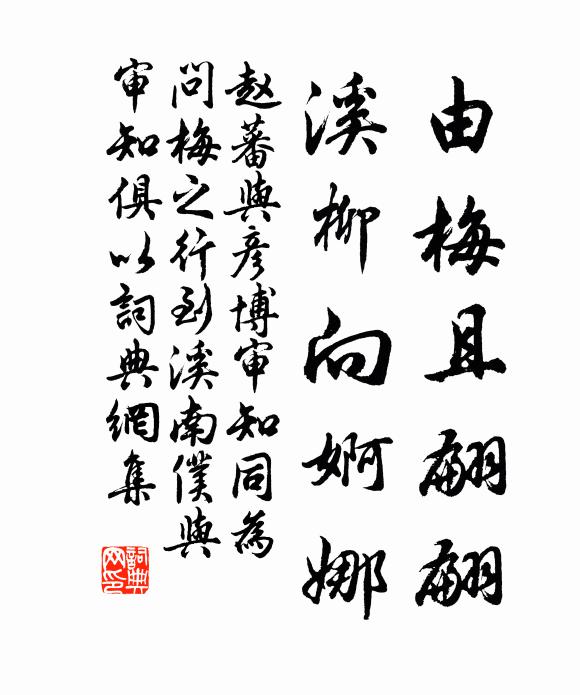 由梅且翩翩
溪柳向婀娜
赵蕃與彦博审知同為
问梅之行到溪南僕與
审知俱以詞典網集
詞典网印